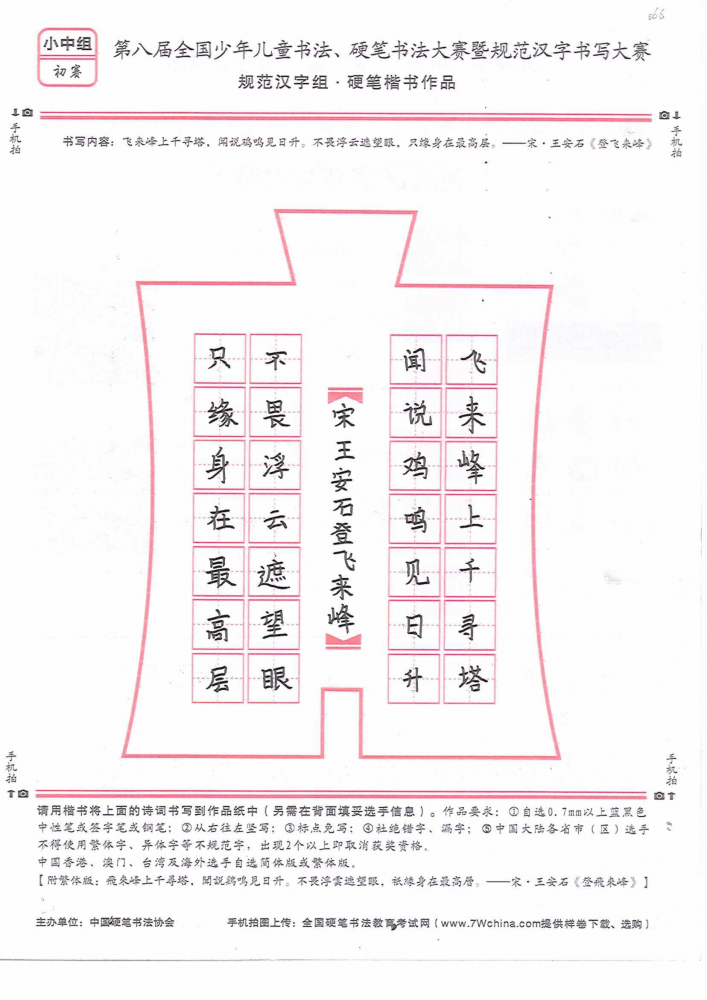 066
小中组
初赛
第八届全国少年儿童书法、硬笔书法大赛暨规范汉字书写大赛
规范汉字组·硬笔楷书作品
手机拍
手机拍
书写内容：飞来峰上千寻塔，闻说鸡鸣见日升。不畏浮云遮望眼，只缘身在最高层。——宋·王安石《登飞来峰》
飞来峰上千寻塔
闻说鸡鸣见日升
宋王安石登飞来峰
不畏浮云遮望眼
只缘身在最高层
手机拍
手机拍
请用楷书将上面的诗词书写到作品纸中（另需在背面填妥选手信息）。作品要求：①自选0.7mm以上蓝黑色
中性笔或签字笔或钢笔；②从右往左竖写；③标点免写；④杜绝错字、漏字；⑤中国大陆各省市（区）选手
不得使用繁体字、异体字等不规范字，出现2个以上即取消获奖资格。
中国香港、澳门、台湾及海外选手自选简体版或繁体版。
【附繁体版：飛來峰上千尋塔，聞說鷄鳴見日升。不畏浮雲遮望眼，祇緣身在最高層。——宋·王安石《登飛來峰》】
主办单位：中国硬笔书法协会
手机拍图上传：全国硬笔书法教育考试网（www.7Wchina.com提供样卷下载、选购）